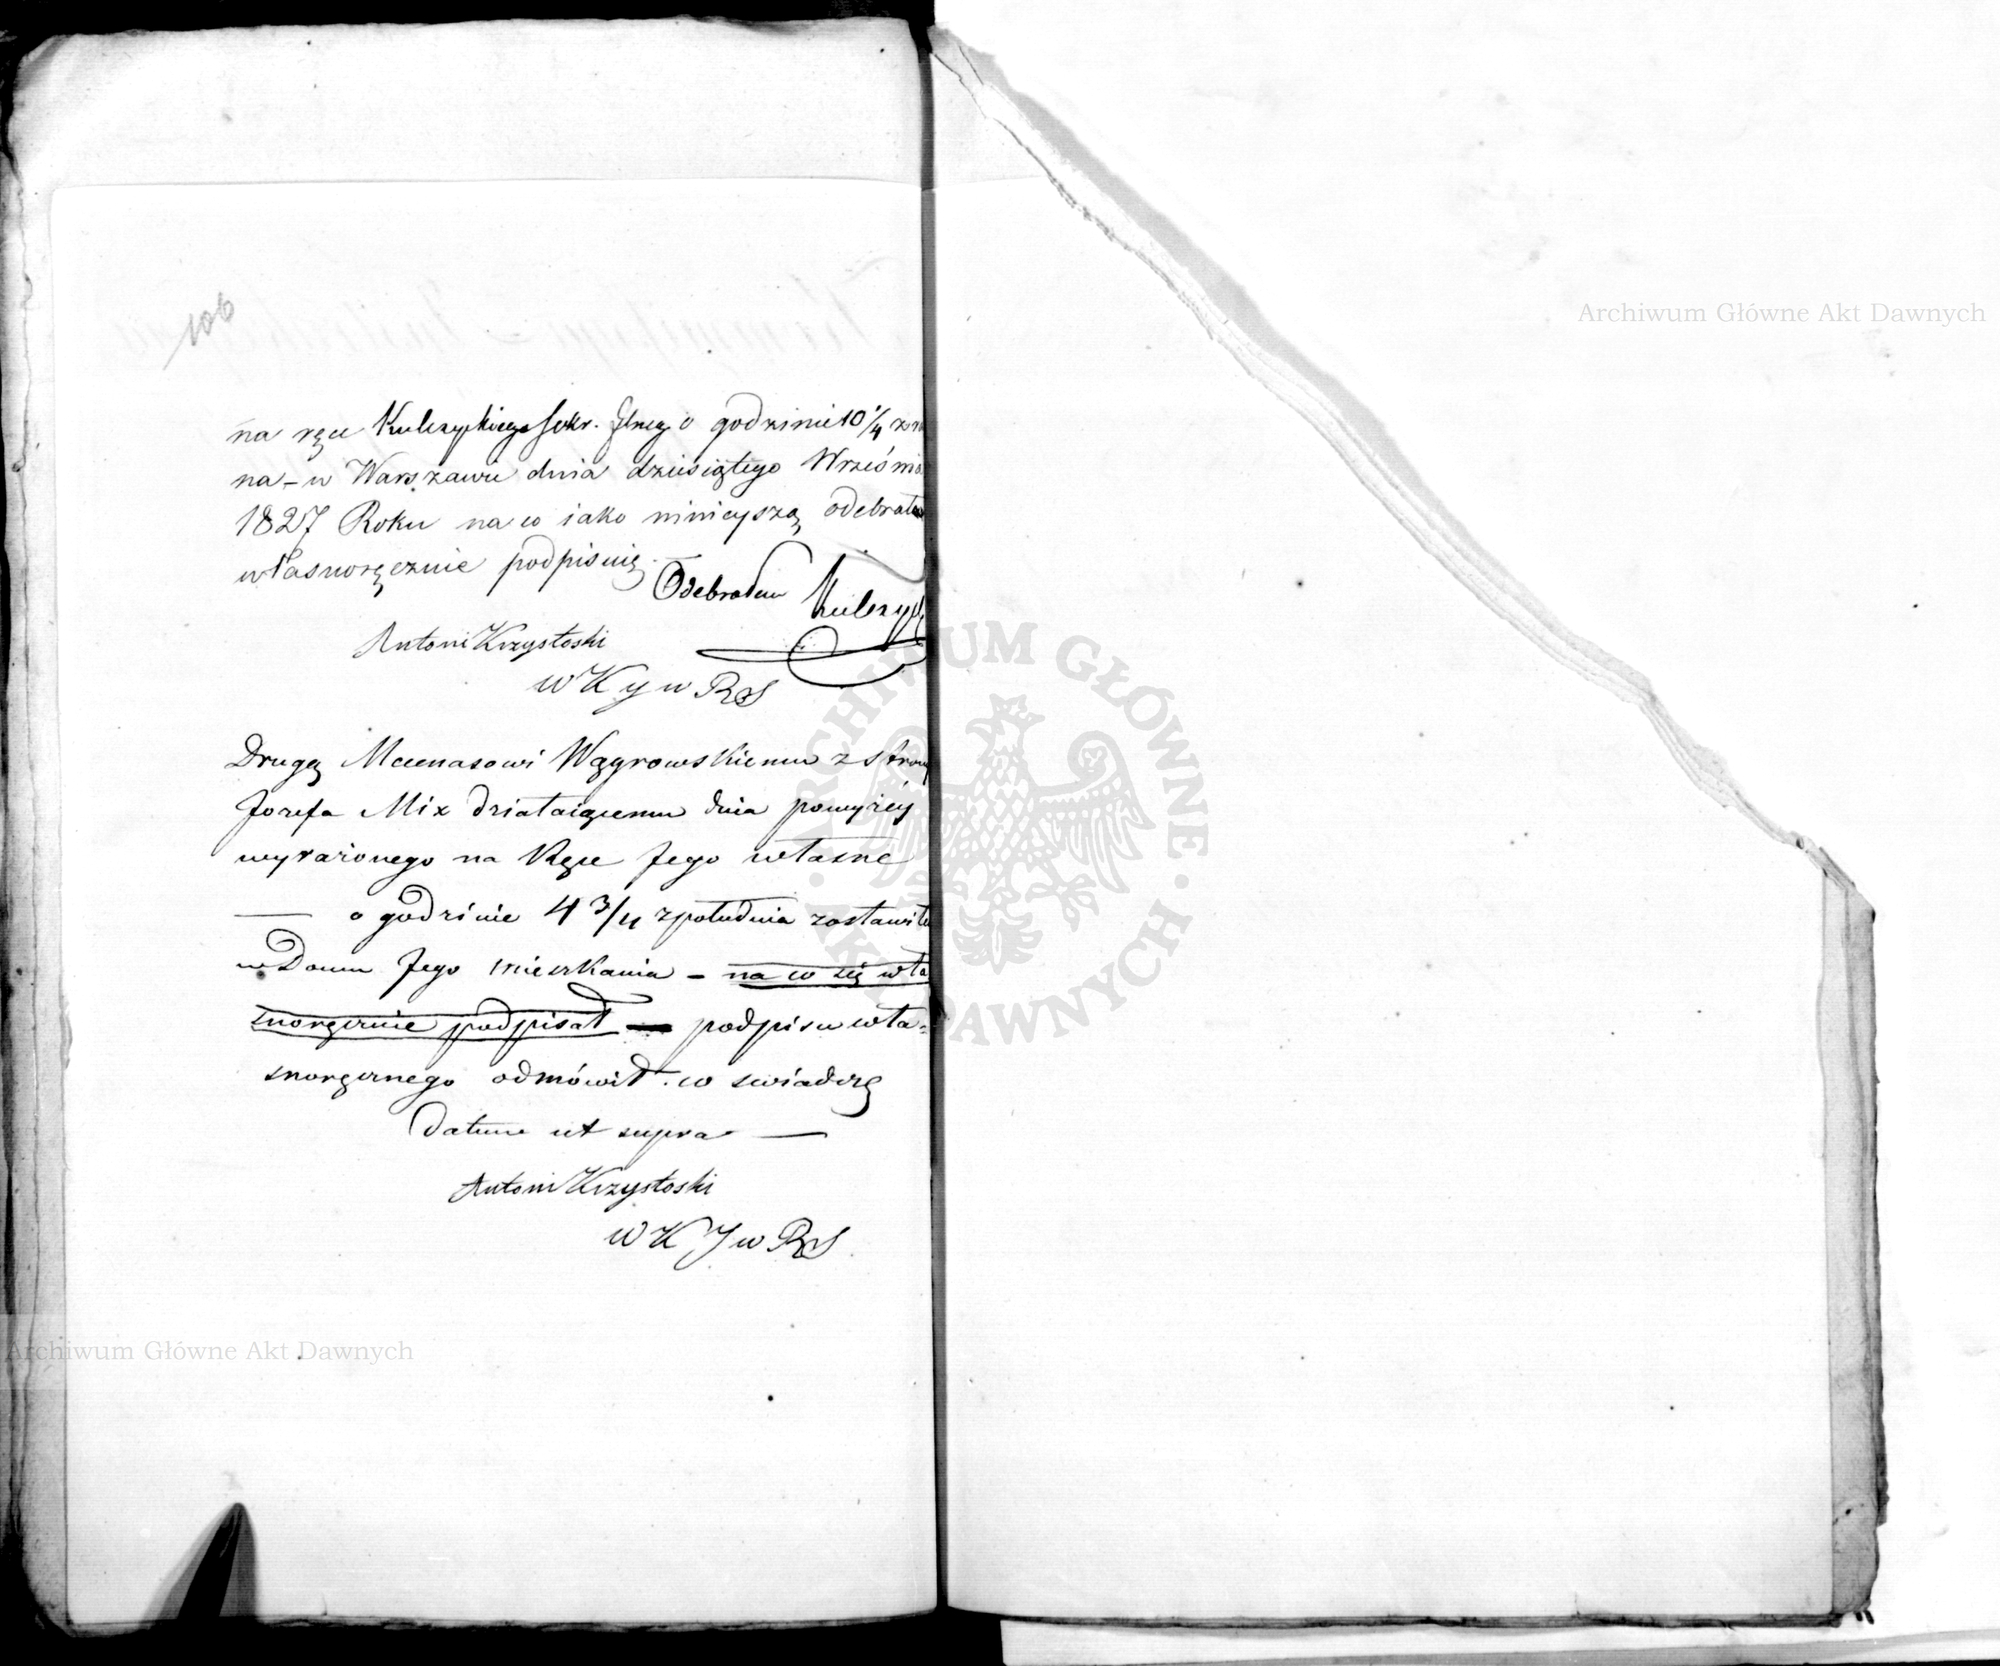 106
na ręce Kulczyckiego Sekr. Jlneg o godzinie 10 1/4 z ra
na - w Warszawie dnia dziesiątego Wrześnía
1827 Roku na co iako ninieyszą odebrałem
własnoręcznie podpisuię.
Odebrałem Kulczyc
Antoni Krzystoski
W K y w R S
Drugą Mecenasowi Wągrowskiemu z strony
Jozefa Mix działaiącemu dnia powyżéy
wyrażonego na Ręce Jego własne
— o godzinie 4 3/4 z południa zostawiłem
w Domu Jego mieszkania - na co się wła
snoręcznie podpisał — podpisu wła-
snoręcznego odmówił. co swiadczę
Datum ut supra —
Antoni Krzystoski
W K J w R S
Archiwum Główne Akt Dawnych
Archiwum Główne Akt Dawnych
ARCHIWUM GŁÓWNE · AKT DAWNYCH ·